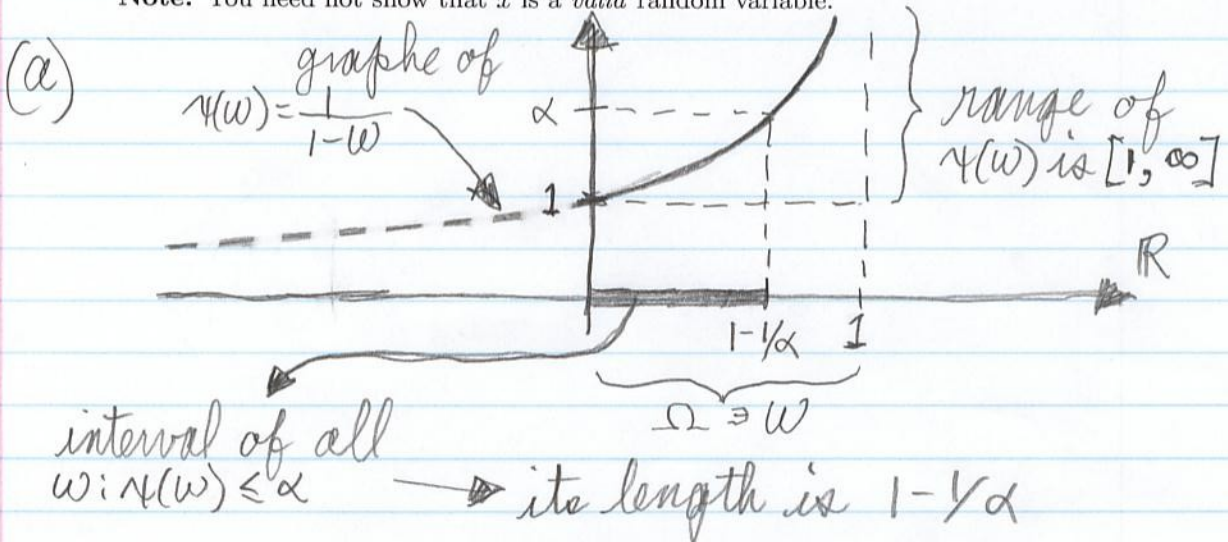 Note: You need not show that x is a valid random variable.
(a)
graphe of
ψ(ω) = 1/(1-ω)
α
1
range of
ψ(ω) is [1, ∞]
ℝ
1-1/α 1
Ω ∋ ω
interval of all
ω : ψ(ω) ≤ α → its length is 1-1/α